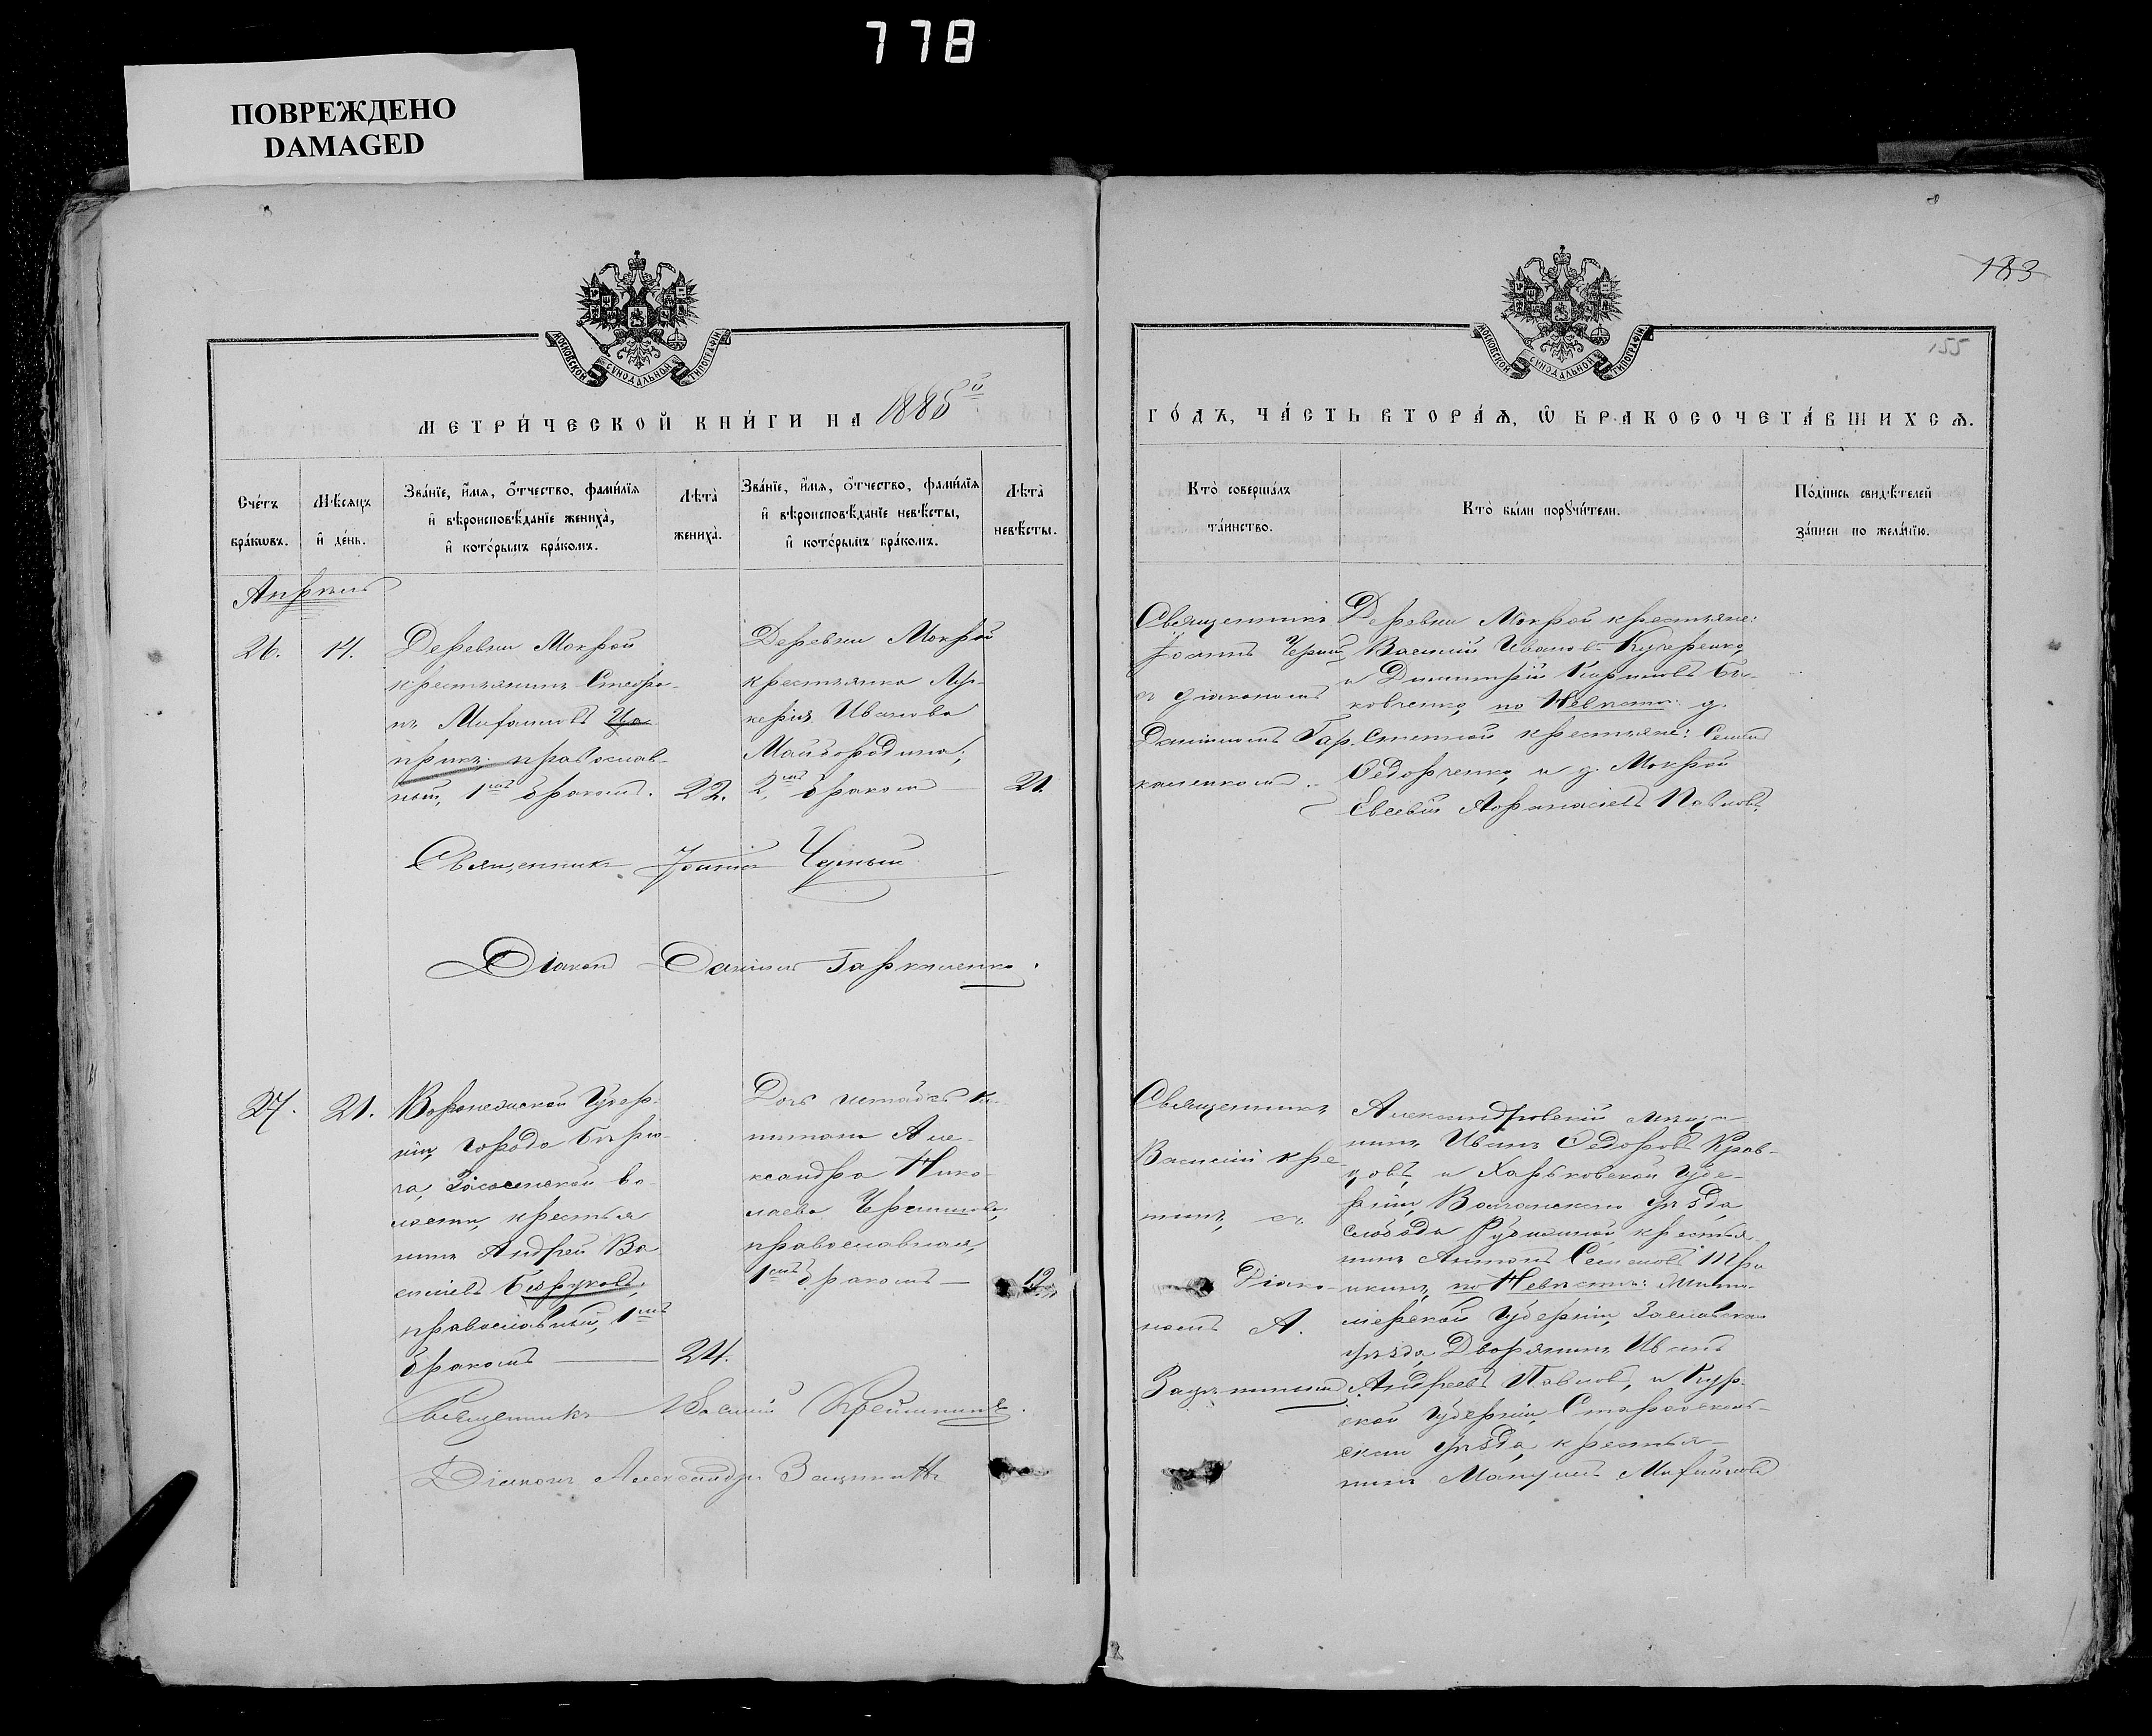 778
ПОВРЕЖДЕНО
DAMAGED
183
155
МОСКОВСКОЙ СѴНОДАЛЬНОЙ ТИПОГРАФІИ
МОСКОВСКОЙ СѴНОДАЛЬНОЙ ТИПОГРАФІИ
МЕТРИ́ЧЕСКОЙ КНИ́ГИ НА 1885й
ГО́ДЪ, ЧА́СТЬ ВТОРА́Ѧ, Ѡ БРАКОСОЧЕТА́ВШИХСѦ.
Сче́тъ бра́кѡвъ.
Мѣ́сѧцъ и҆ де́нь.
Зва́нїе, и҆́мѧ, ѻ҆́тчество, фами́лїѧ
и҆ вѣроисповѣ́данїе жениха̀,
и҆ кото́рымъ бра́комъ.
Лѣта̀ жениха̀.
Зва́нїе, и҆́мѧ, ѻ҆́тчество, фами́лїѧ
и҆ вѣроисповѣ́данїе невѣ́сты,
и҆ кото́рымъ бра́комъ.
Лѣта̀ невѣ́сты.
Кто̀ соверша́лъ
та́инство.
Кто̀ бы́ли порꙋчи́тели.
По́дпись свидѣ́телей
за́писи по жела́нїю.
Апрѣль
26.
14.
Деревни Мокрой
крестьянинъ Стефа-
нъ
православ-
ный, 1мъ бракомъ.
22.
Деревни Мокрой
крестьянка Лу-
керія Иванова
Майбородина,
2мъ бракомъ
21.
Священникъ
Іоаннъ Черный
съ діакономъ
Даніиломъ Гар-
каленкомъ.
Деревни Мокрой крестьяне:
Василій Ивановъ Кучеренко,
и Димитрій
ковченко, по Невѣстѣ: д.
Степной крестьяне:
Ѳедорченко, и д. Мокрой
Евсевій Аѳанасіевъ Павловъ.
Священникъ Іоаннъ Черный
Діаконъ Даніилъ Гаркаленко.
27.
21.
Воронежской Губер-
ніи, города Бирю-
ча, Засосенской во-
лости, крестья
нинъ Андрей Ва
силіевъ Бирюковъ,
православный, 1мъ
бракомъ
24.
Дочь штабсъ ка-
питана Але-
ксандра Нико
лаева
православная,
1мъ бракомъ
19.
Священникъ
Василій Кре
съ
Діако-
номъ А.
Александровскій мѣща-
нинъ Иванъ Ѳедоровъ Крав-
цовъ, и Харьковской Губе-
рніи, Волчанскаго уѣзда,
слободы крестья-
нинъ Антонъ Семеновъ
по Невѣстѣ:
Губерніи, Заславскаго
уѣзда, Дворянинъ Иванъ
Андреевъ Павловъ, и Кур-
ской Губерніи, Старооскаль-
скаго уѣзда, крестья-
нинъ
Священникъ Василій
Діаконъ Александръ